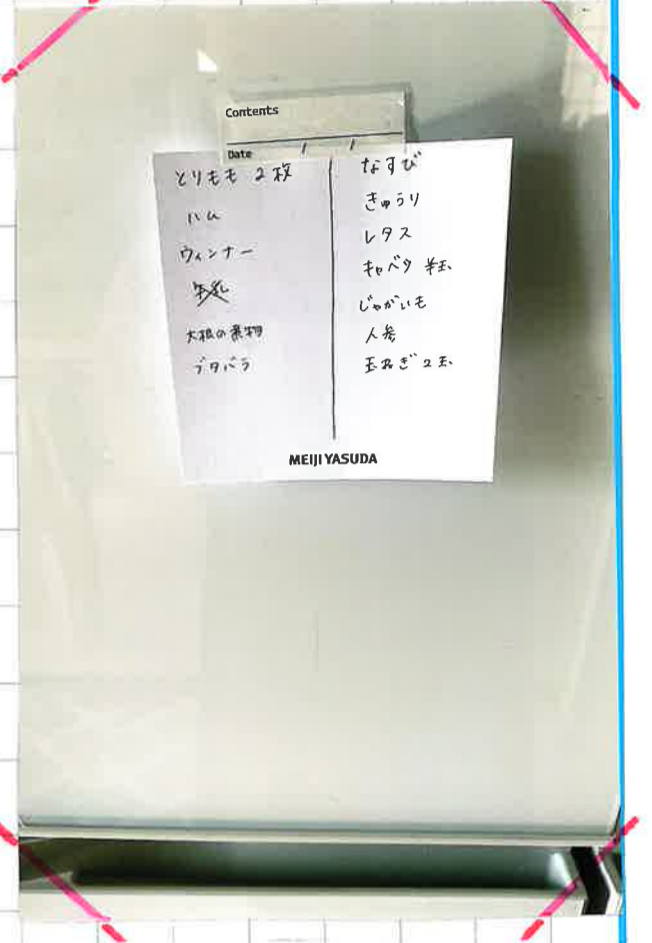 Contents
Date / /
とりもも 2枚
ハム
ウィンナー
牛乳
大根の煮物
ブタバラ
なすび
きゅうり
レタス
キャベツ 半玉
じゃがいも
人参
玉ねぎ 2玉
MEIJI YASUDA